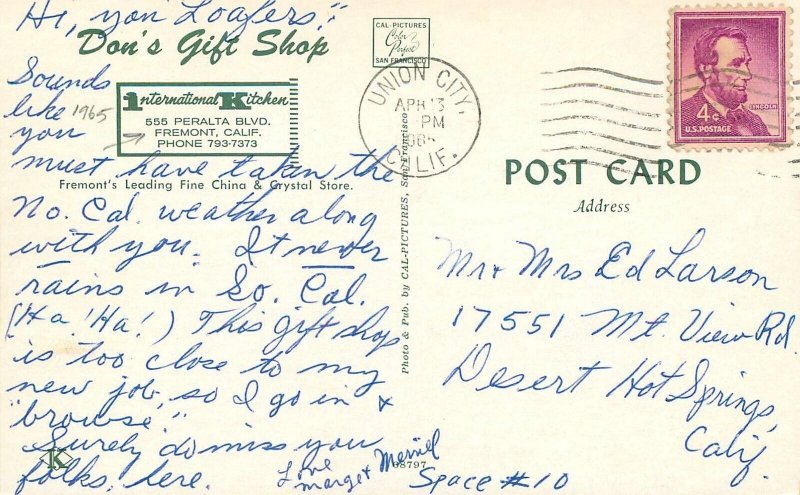 Hi, you Loafers!!
Don's Gift Shop
CAL-PICTURES
Color
SAN FRANCISCO
Sounds
like 1965
you
International Kitchen
555 PERALTA BLVD.
FREMONT, CALIF.
PHONE 793-7373
must have taken the
Fremont's Leading Fine China & Crystal Store.
No. Cal. weather along
with you. It never
rains in So. Cal.
(Ha! Ha!) This gift shop
is too close to my
new job, so I go in &
"browse".
Surely do miss you
folks, here.
K
Love
Marge & Merriel
68797
Photo & Pub. by CAL-PICTURES, San Francisco
UNION CITY,
APR 13
PM
CALIF.
4¢
LINCOLN
U.S. POSTAGE
POST CARD
Address
Mr & Mrs Ed Larson
17551 Mt. View Rd.
Desert Hot Springs,
Calif.
Space #10